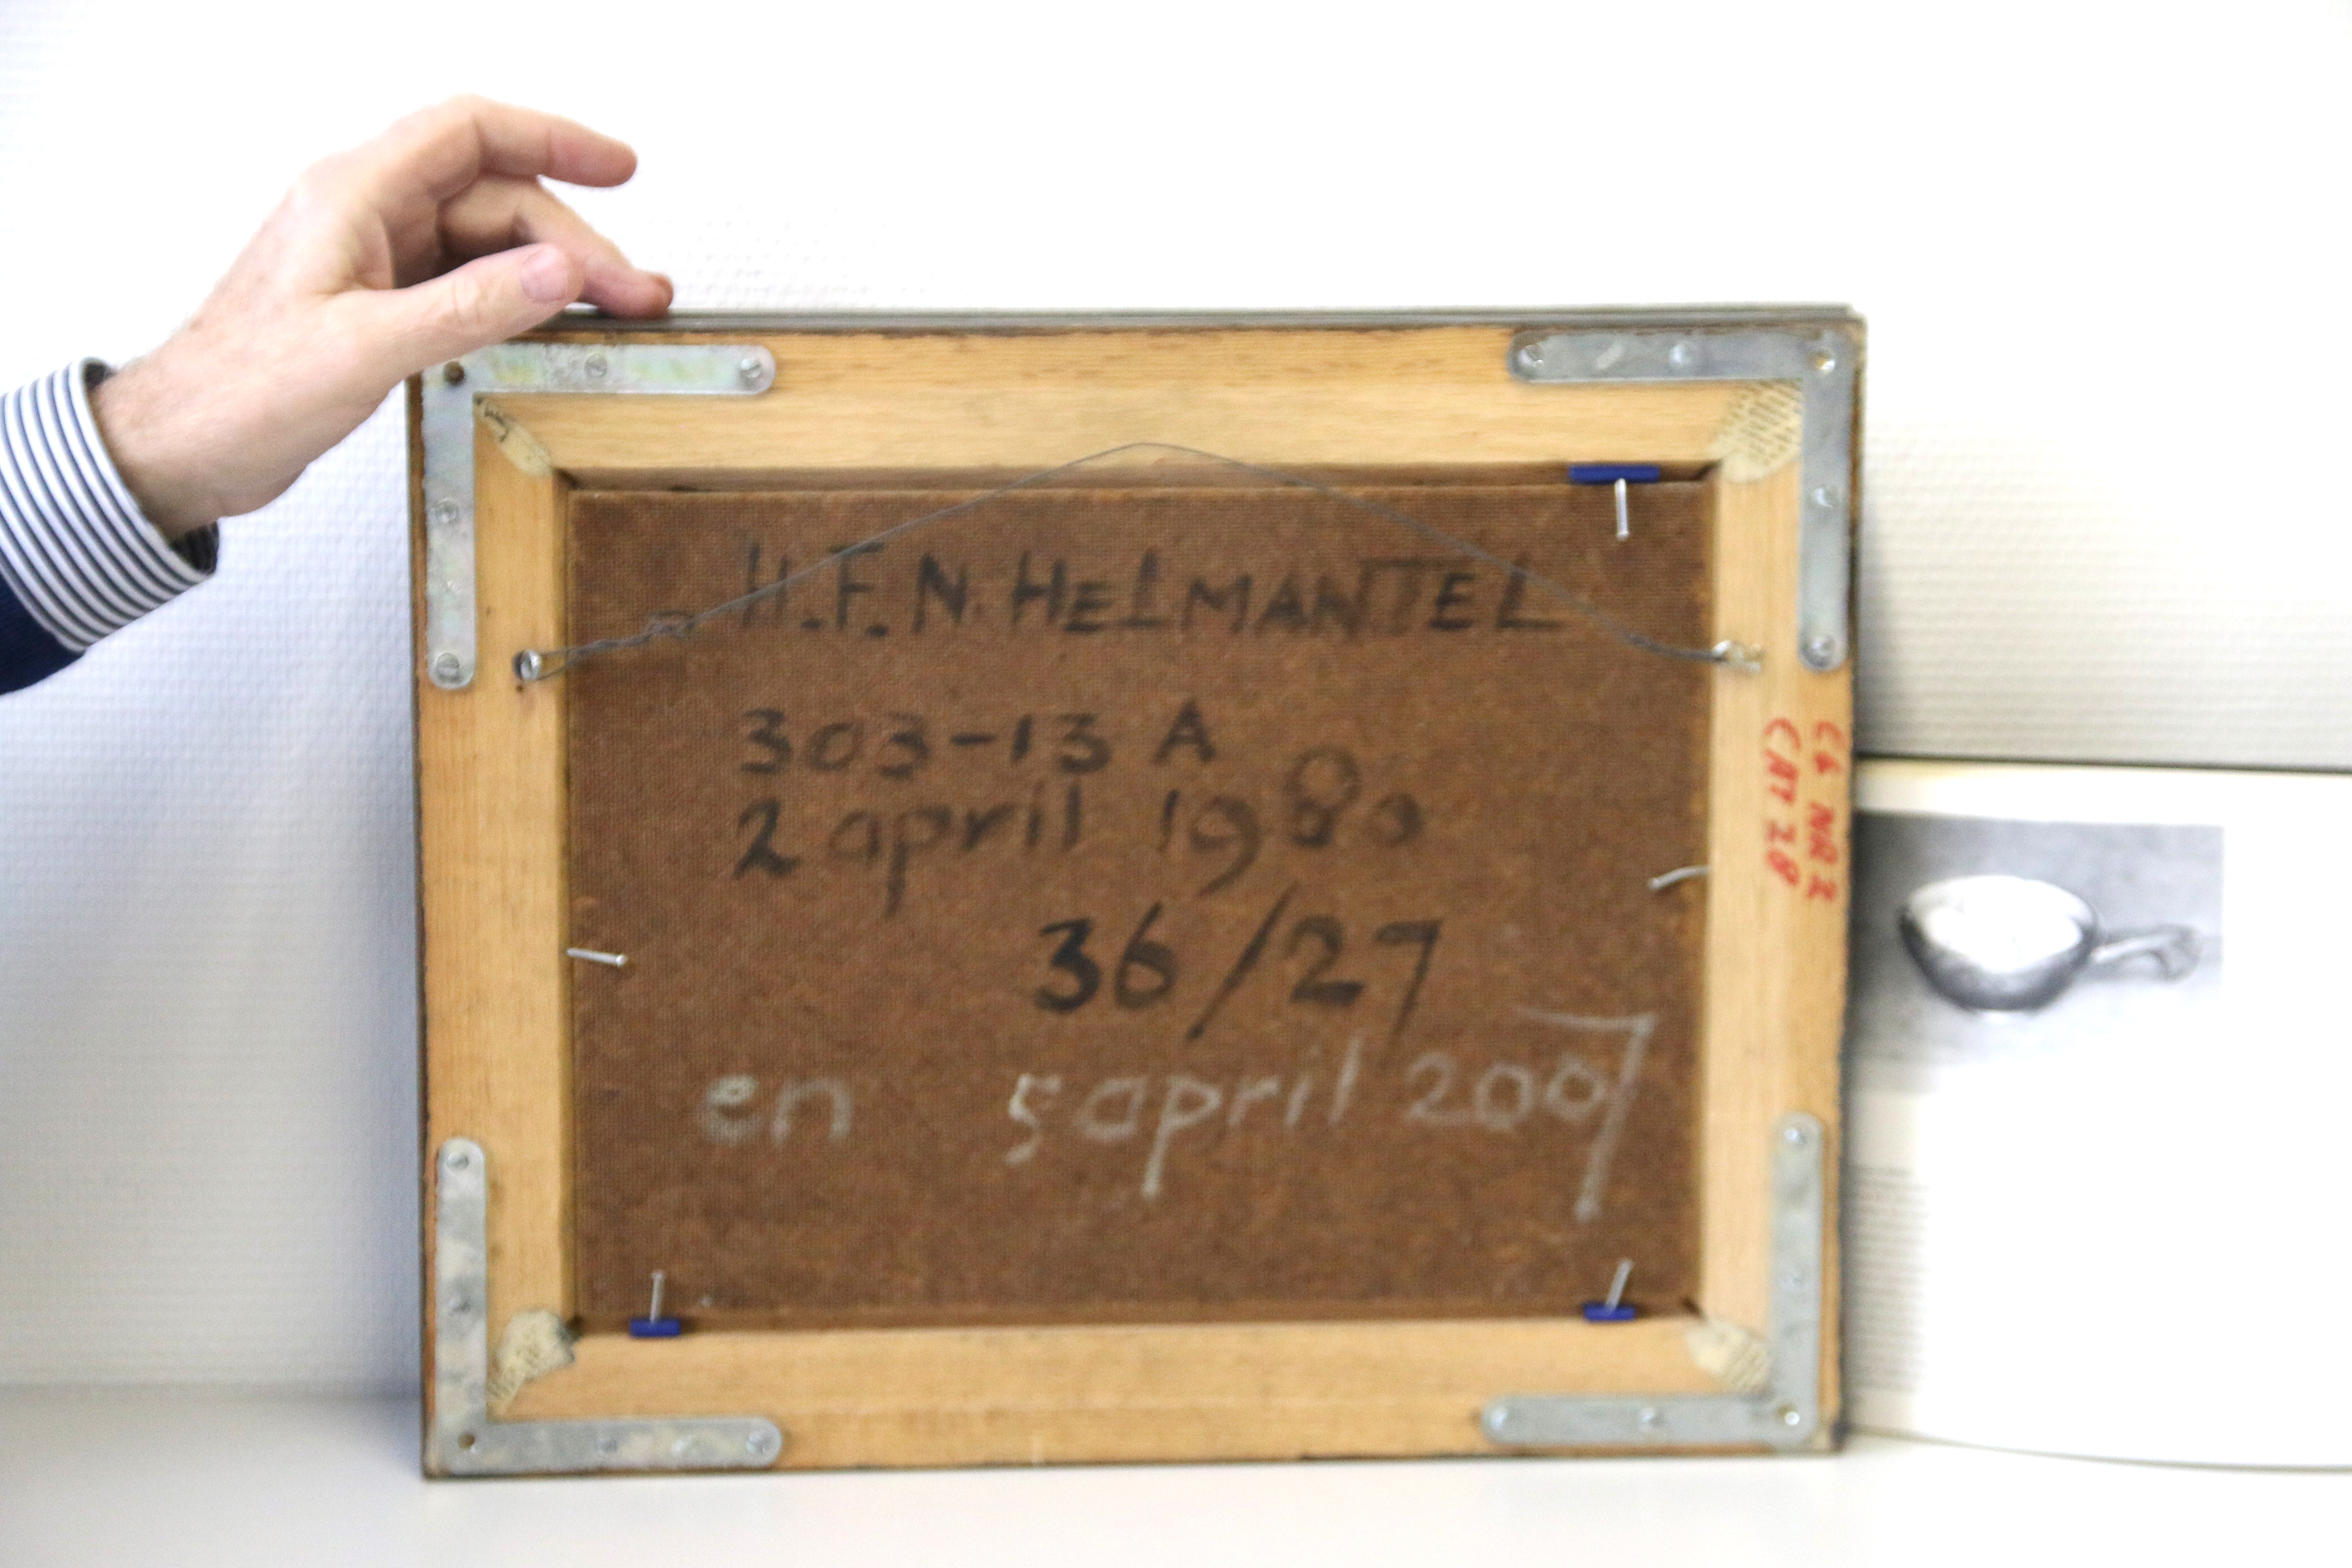 H.F.N. HELMANTEL
303-13 A
2 april 1980
36/27
en 5 april 2007
CAT 28